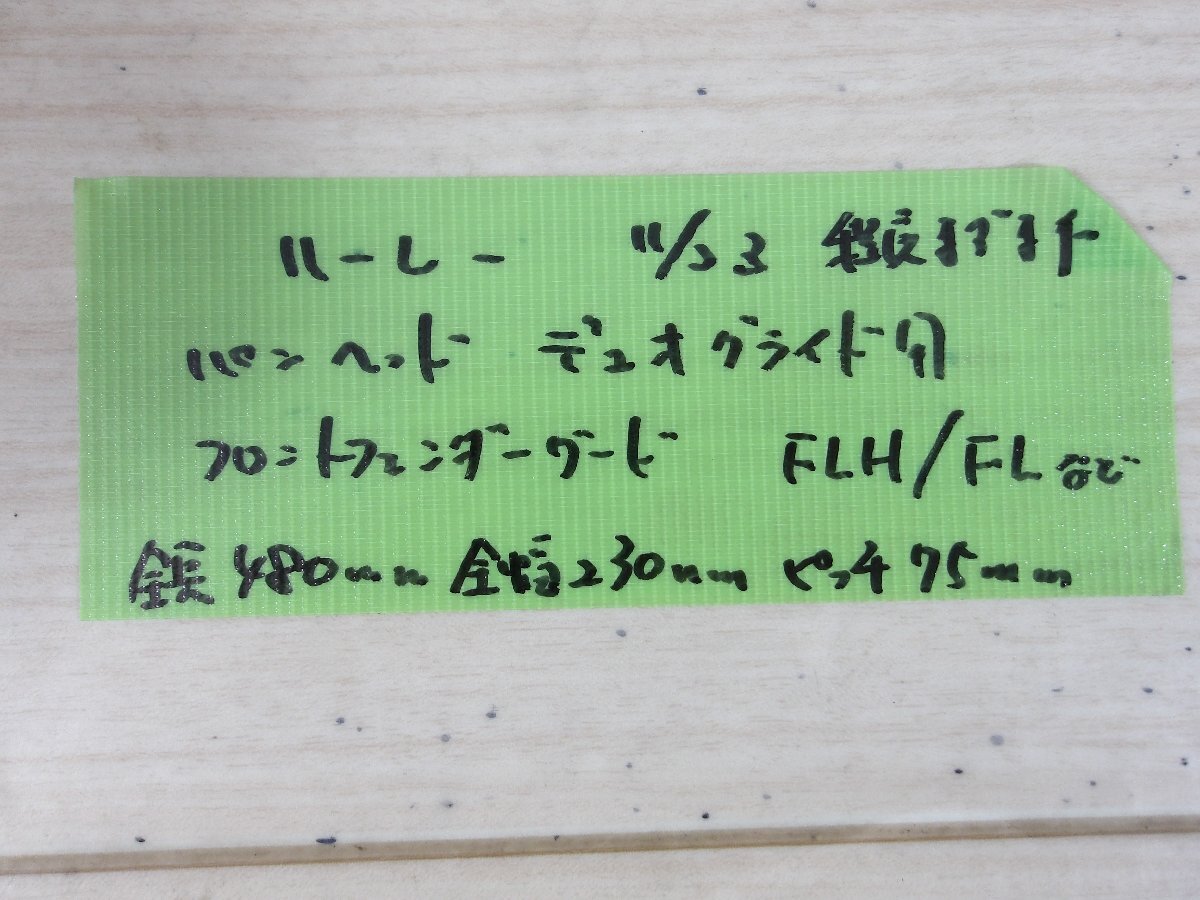 ハーレー 11/23
パンヘッド デュオグライド用
フロントフェンダーガード FLH/FL など
全長480mm 全幅230mm ピッチ75mm